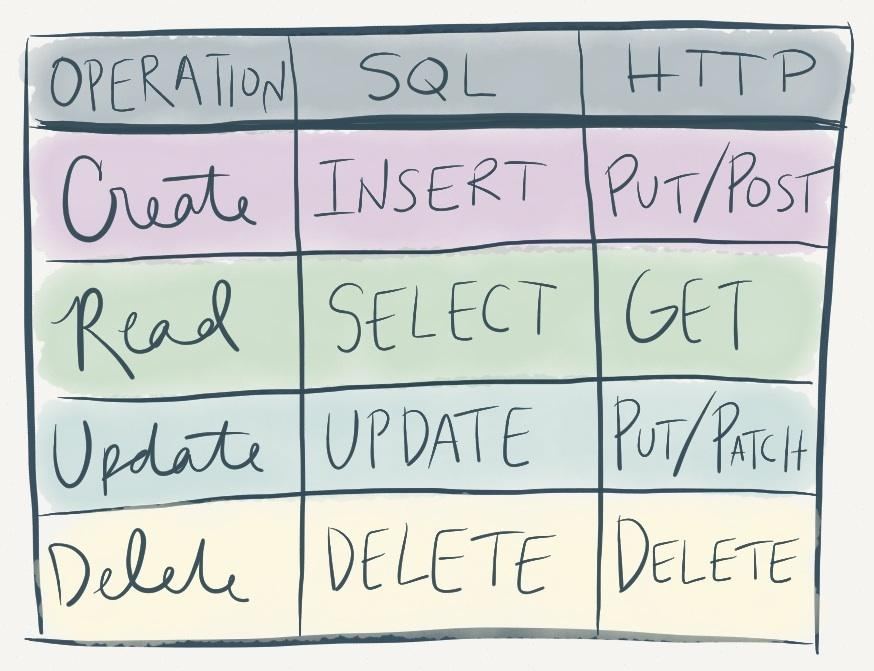 OPERATION SQL HTTP
Create INSERT PUT/POST
Read SELECT GET
Update UPDATE PUT/PATCH
Delete DELETE DELETE